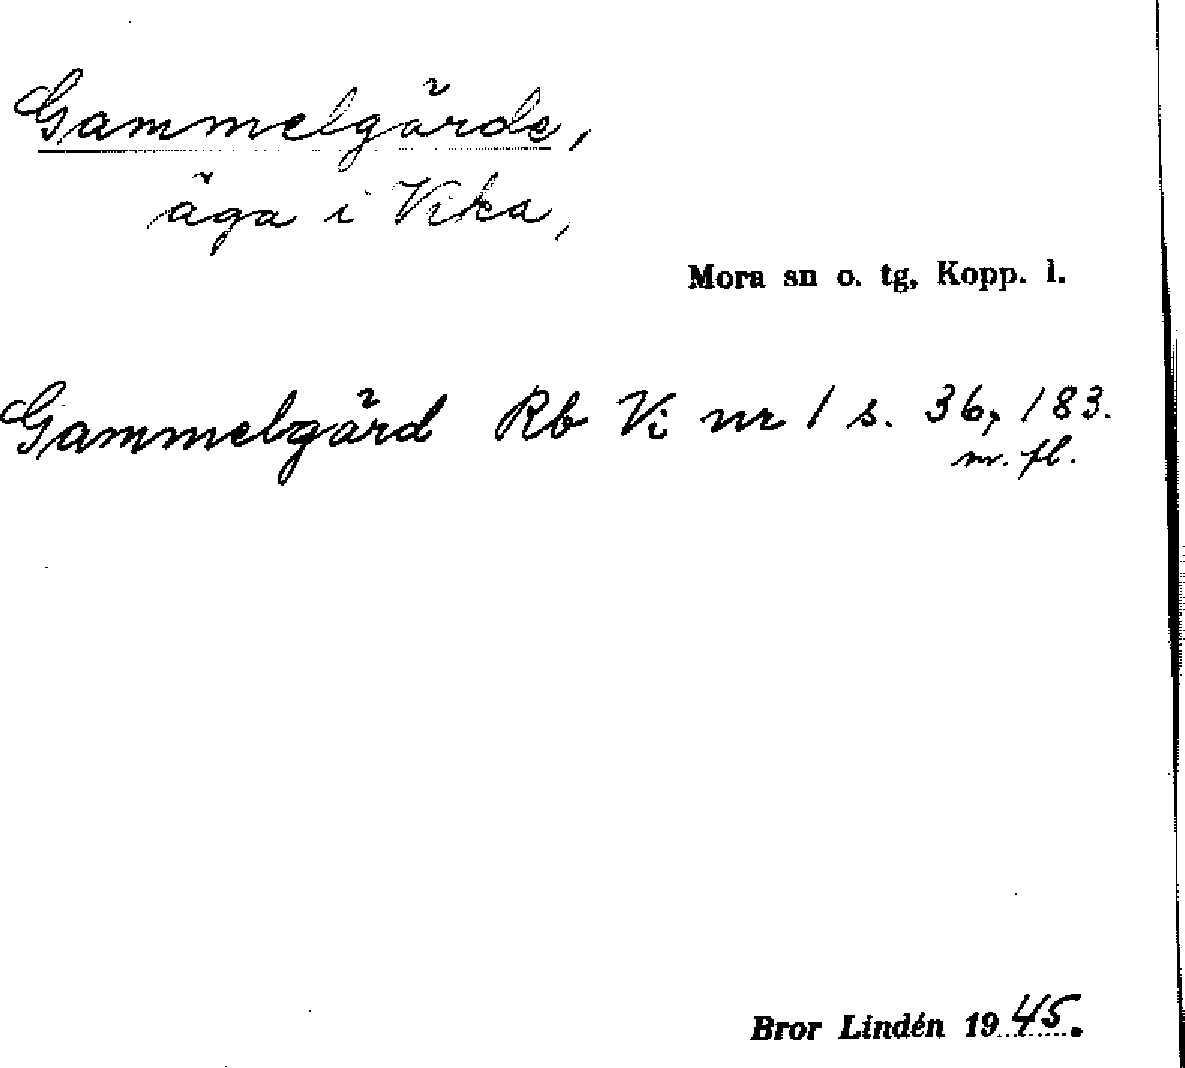 Gammelgärde,
äga i Vika,
Mora sn o. tg, Kopp. l.
Gammelgärd Rb Vi nr 1 s. 36, 183.
m. fl.
Bror Lindén 1945.